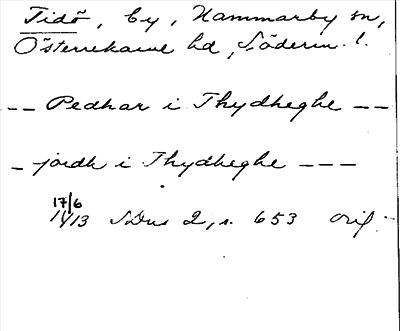 Tidö, by, Hammarby sn,
Österrekarne hd, Söderm. l.
-- Pedhar i Thydheghe --
- jordh i Thydheghe ---
17/6
1413 SDns 2, s. 653 orig.